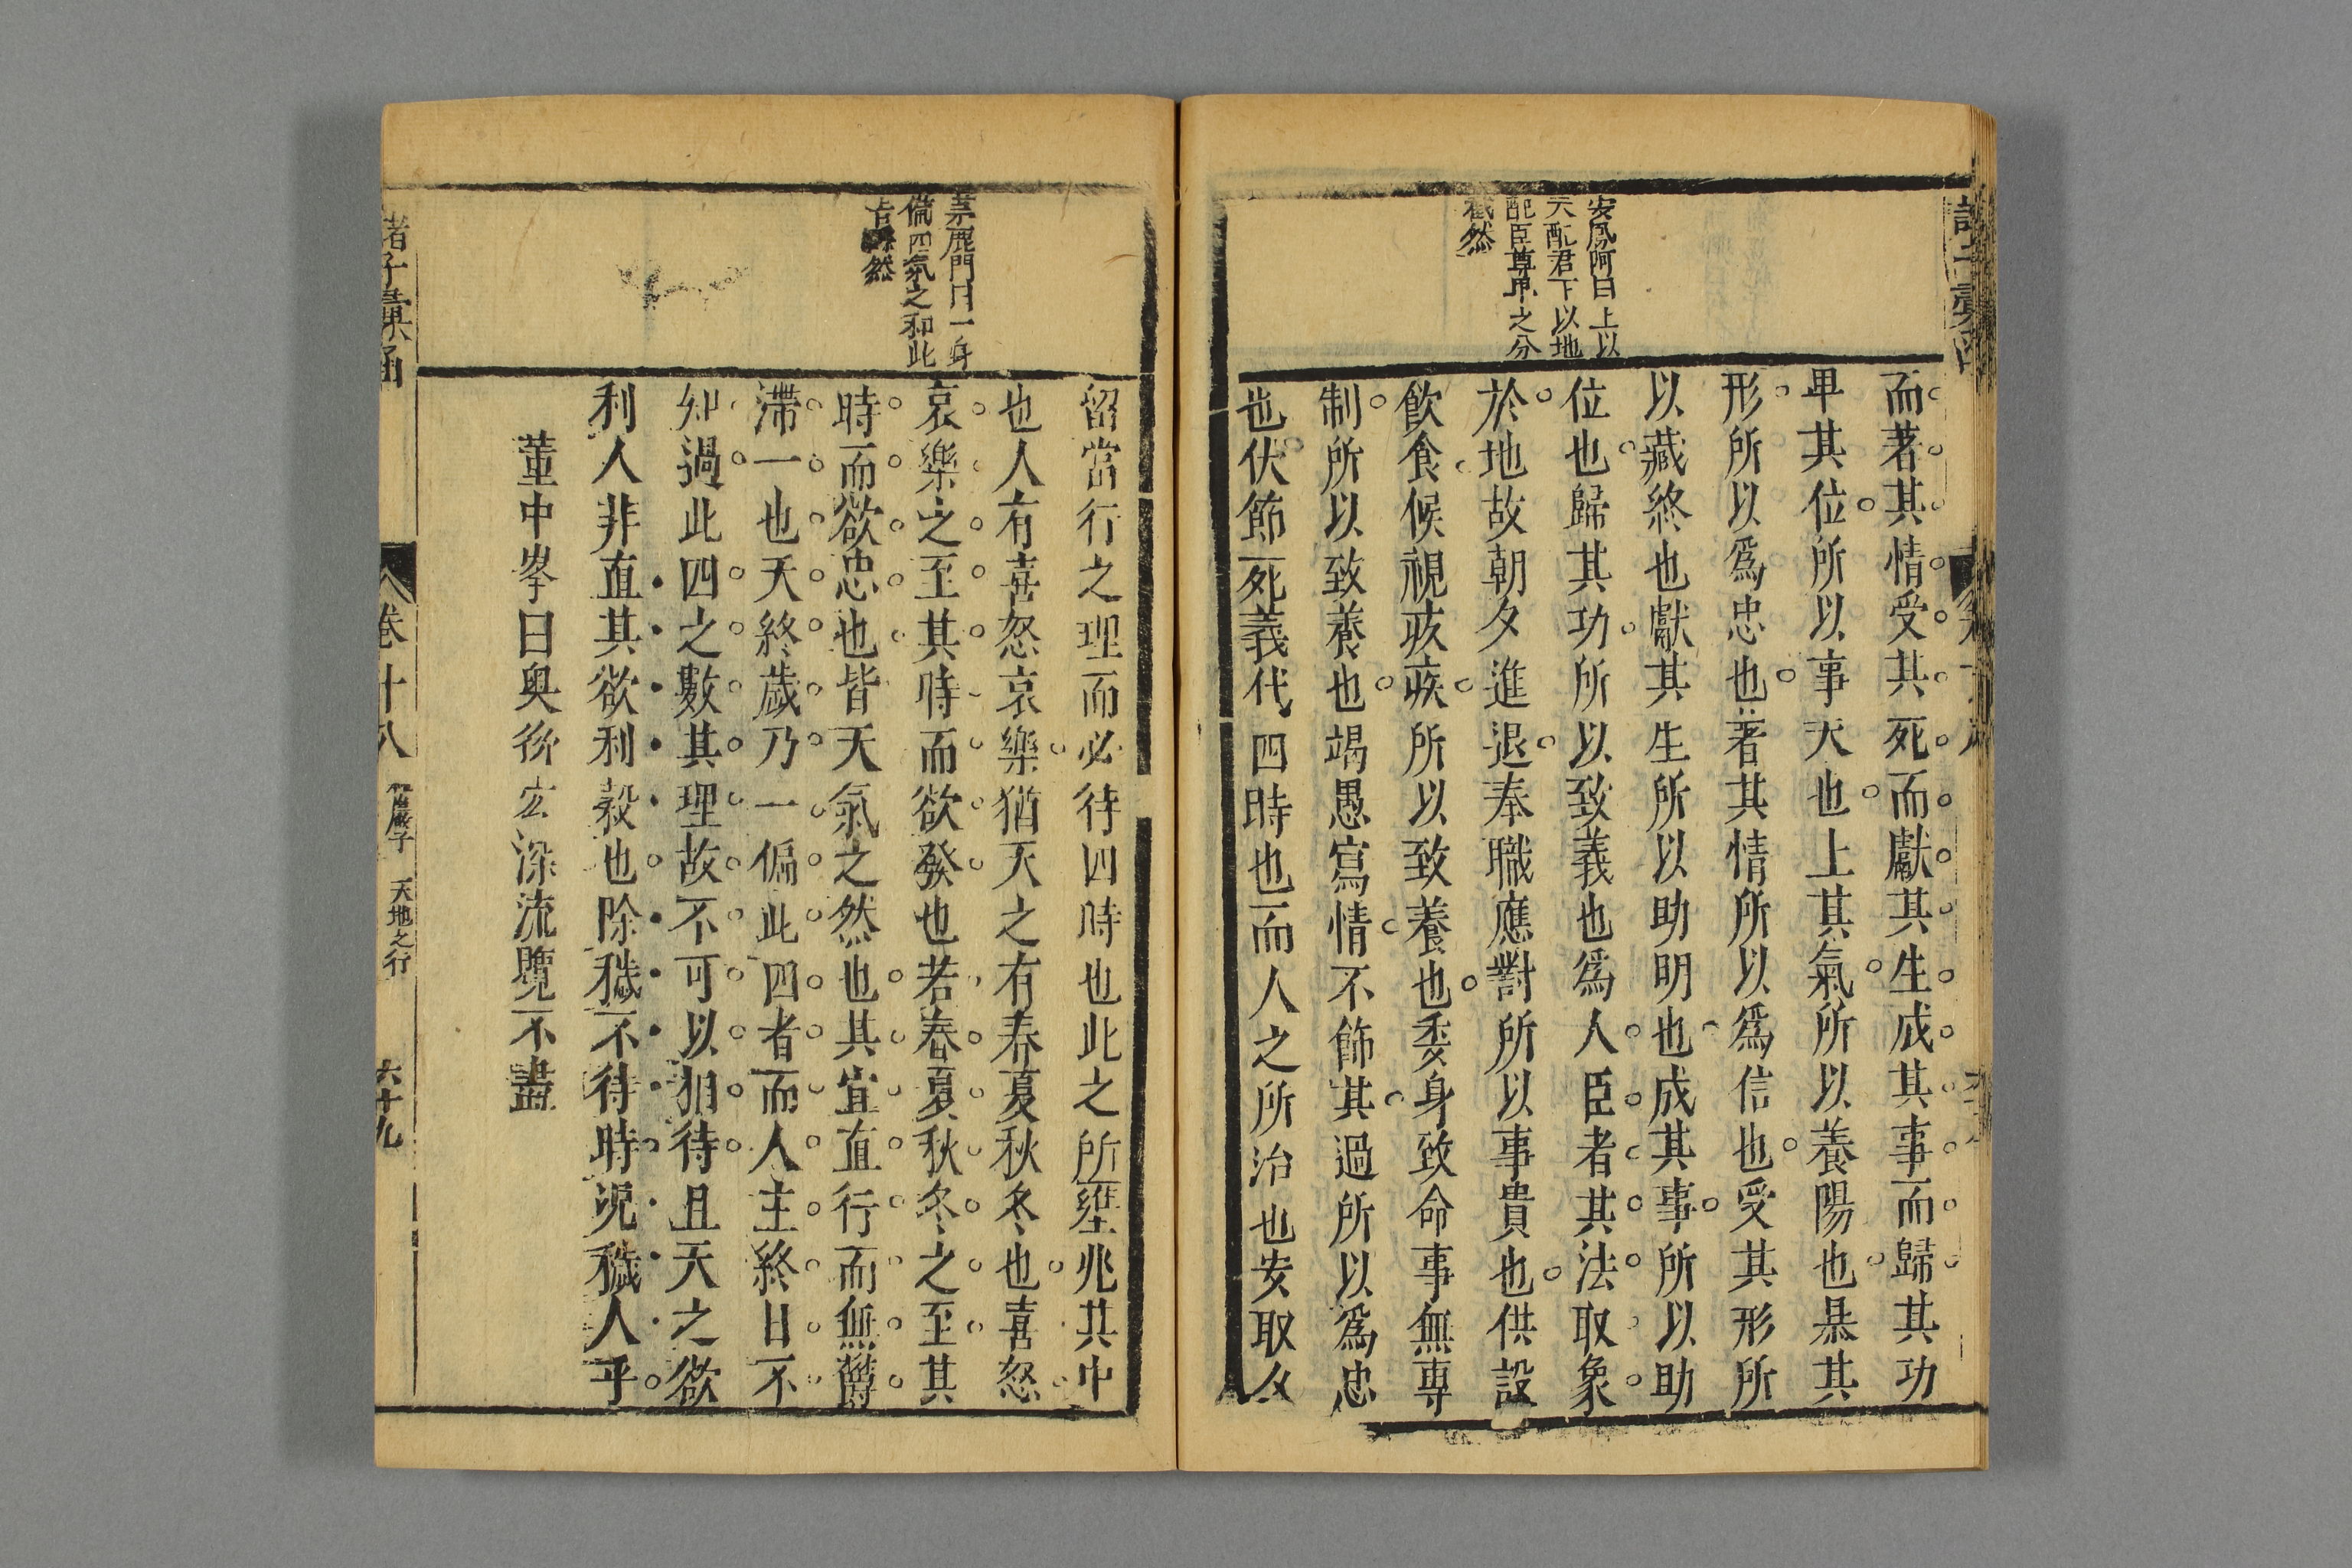 安鳳阿曰上以
天配君下以地
配臣尊卑之分
截然
而著其情受其死而獻其生成其事而歸其功
卑其位所以事天也上其氣所以養陽也暴其
形所以爲忠也著其情所以爲信也受其形所
以藏終也獻其生所以助明也成其事所以助
位也歸其功所以致義也爲人臣者其法取象
於地故朝夕進退奉職應對所以事貴也供設
飲食候視疢疾所以致養也委身致命事無專
制所以致養也竭愚寫情不飾其過所以爲忠
也伏節死義代四時也而人之所治也安取久
茅鹿門曰一身
備四氣之和此
然
留當行之理而必待四時也此之所壅兆其中
也人有喜怒哀樂猶天之有春夏秋冬也喜怒
哀樂之至其時而欲發也若春夏秋冬之至其
時而欲忠也皆天氣之然也其宜直行而無鬱
滯一也天終歲乃一偏此四者而人主終日不
知過此四之數其理故不可以相待且天之欲
利人非直其欲利穀也除穢不待時況穢人乎
董中峯曰奥衍宏深流覽不盡
諸子彙函
卷十八
天地之行
六十九